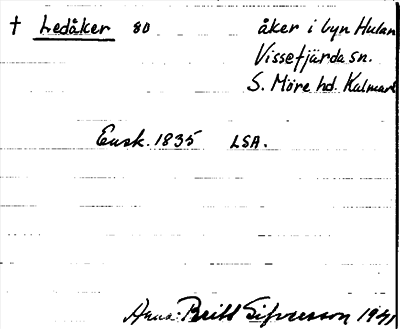 † Ledåker 80 åker i byn Hulan
Vissefjärda sn.
S. Möre hd. Kalmar l
Ensk. 1835 LSA.
Anna-Britt Sifversson 1941